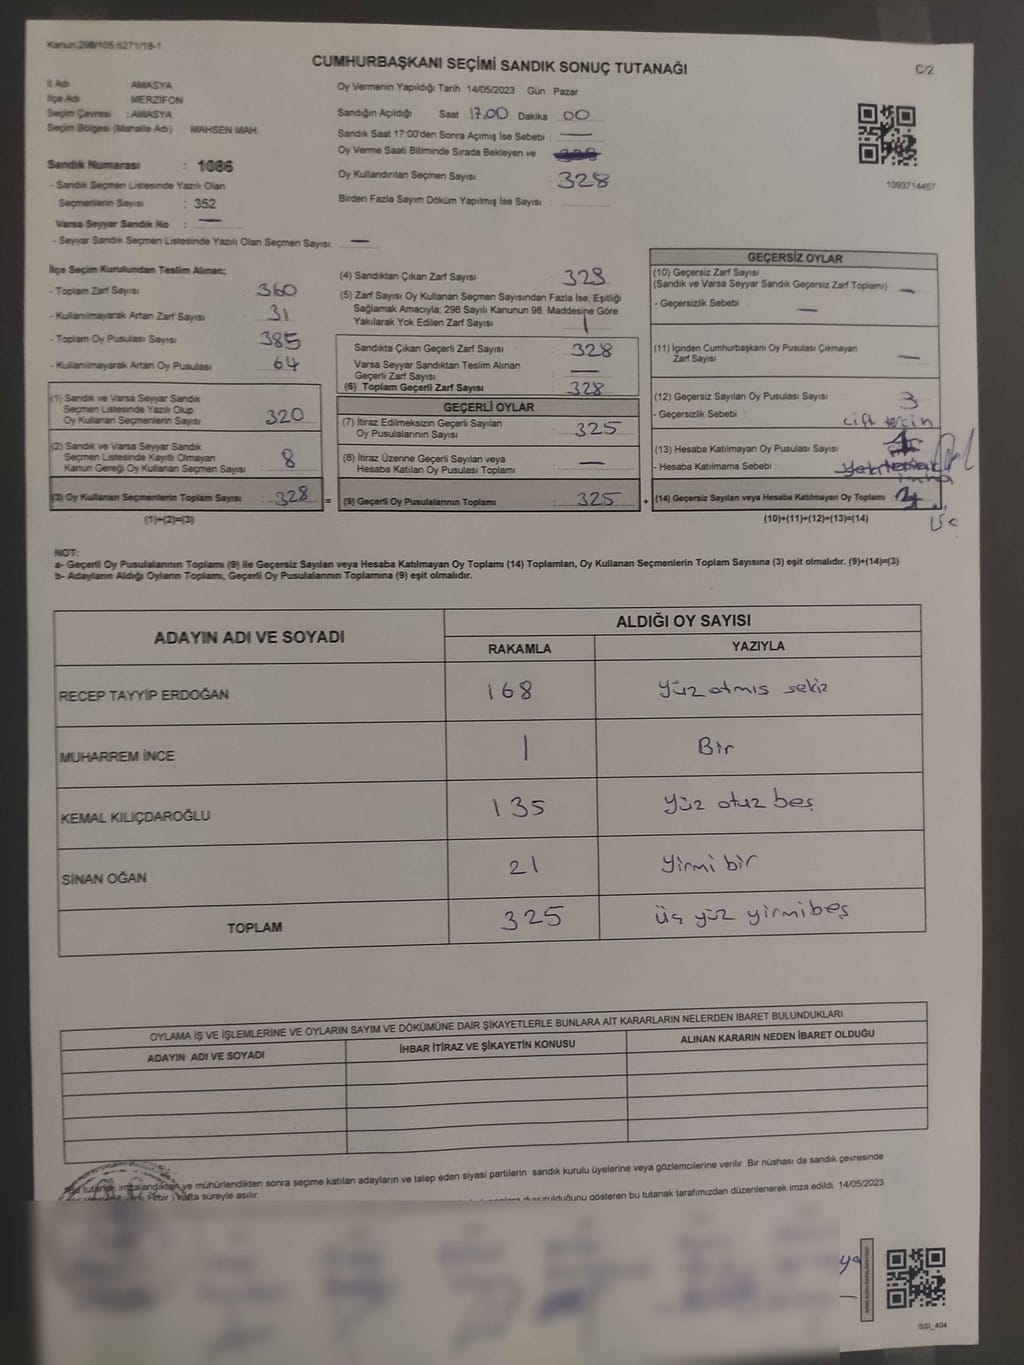 Kanun:298/105;6271/18-1
CUMHURBAŞKANI SEÇİMİ SANDIK SONUÇ TUTANAĞI
C/2
İl Adı AMASYA
İlçe Adı MERZİFON
Seçim Çevresi : AMASYA
Seçim Bölgesi (Mahalle Adı) : MAHSEN MAH.
Sandık Numarası : 1086
- Sandık Seçmen Listesinde Yazılı Olan
Seçmenlerin Sayısı : 352
Varsa Seyyar Sandık No : —
- Seyyar Sandık Seçmen Listesinde Yazılı Olan Seçmen Sayısı: —
Oy Vermenin Yapıldığı Tarih 14/05/2023 Gün : Pazar
Sandığın Açıldığı Saat 17.00 Dakika : 00
Sandık Saat 17:00'den Sonra Açımış İse Sebebi : —
Oy Verme Saati Bitiminde Sırada Bekleyen ve
Oy Kullandırılan Seçmen Sayısı : 328
Birden Fazla Sayım Döküm Yapılmış İse Sayısı :
1093714457
İlçe Seçim Kurulundan Teslim Alınan;
- Toplam Zarf Sayısı : 360
- Kullanılmayarak Artan Zarf Sayısı : 31
- Toplam Oy Pusulası Sayısı : 385
- Kullanılmayarak Artan Oy Pusulası : 64
(1) Sandık ve Varsa Seyyar Sandık
Seçmen Listesinde Yazılı Olup
Oy Kullanan Seçmenlerin Sayısı : 320
(2) Sandık ve Varsa Seyyar Sandık
Seçmen Listesinde Kayıtlı Olmayan
Kanun Gereği Oy Kullanan Seçmen Sayısı : 8
(3) Oy Kullanan Seçmenlerin Toplam Sayısı : 328 =
(1)+(2)=(3)
(4) Sandıktan Çıkan Zarf Sayısı : 328
(5) Zarf Sayısı Oy Kullanan Seçmen Sayısından Fazla İse, Eşitliği
Sağlamak Amacıyla; 298 Sayılı Kanunun 98. Maddesine Göre
Yakılarak Yok Edilen Zarf Sayısı :
Sandıkta Çıkan Geçerli Zarf Sayısı : 328
Varsa Seyyar Sandıktan Teslim Alınan
Geçerli Zarf Sayısı : —
(6) Toplam Geçerli Zarf Sayısı : 328
GEÇERLİ OYLAR
(7) İtiraz Edilmeksizin Geçerli Sayılan
Oy Pusulalarının Sayısı : 325
(8) İtiraz Üzerine Geçerli Sayılan veya
Hesaba Katılan Oy Pusulası Toplamı : —
(9) Geçerli Oy Pusulalarının Toplamı : 325 +
GEÇERSİZ OYLAR
(10) Geçersiz Zarf Sayısı
(Sandık ve Varsa Seyyar Sandık Geçersiz Zarf Toplamı) : —
- Geçersizlik Sebebi : —
(11) İçinden Cumhurbaşkanı Oy Pusulası Çıkmayan
Zarf Sayısı : —
(12) Geçersiz Sayılan Oy Pusulası Sayısı : 3
- Geçersizlik Sebebi : çift tercin
(13) Hesaba Katılmayan Oy Pusulası Sayısı :
- Hesaba Katılmama Sebebi :
imha
(14) Geçersiz Sayılan veya Hesaba Katılmayan Oy Toplamı :
(10)+(11)+(12)+(13)=(14)
NOT:
a- Geçerli Oy Pusulalarının Toplamı (9) ile Geçersiz Sayılan veya Hesaba Katılmayan Oy Toplamı (14) Toplamları, Oy Kullanan Seçmenlerin Toplam Sayısına (3) eşit olmalıdır. (9)+(14)=(3)
b- Adayların Aldığı Oyların Toplamı, Geçerli Oy Pusulalarının Toplamına (9) eşit olmalıdır.
ADAYIN ADI VE SOYADI
ALDIĞI OY SAYISI
RAKAMLA YAZIYLA
RECEP TAYYİP ERDOĞAN 168 yüz atmış sekiz
MUHARREM İNCE 1 Bir
KEMAL KILIÇDAROĞLU 135 yüz otuz beş
SİNAN OĞAN 21 yirmi bir
TOPLAM 325 üç yüz yirmibeş
OYLAMA İŞ VE İŞLEMLERİNE VE OYLARIN SAYIM VE DÖKÜMÜNE DAİR ŞİKAYETLERLE BUNLARA AİT KARARLARIN NELERDEN İBARET BULUNDUKLARI
ADAYIN ADI VE SOYADI İHBAR İTİRAZ VE ŞİKAYETİN KONUSU ALINAN KARARIN NEDEN İBARET OLDUĞU
tutanak imzalandıktan ve mühürlendikten sonra seçime katılan adayların ve talep eden siyasi partilerin sandık kurulu üyelerine veya gözlemcilerine verilir .Bir nüshası da sandık çevresinde
hafta süreyle asılır.
duyurulduğunu gösteren bu tutanak tarafımızdan düzenlenerek imza edildi. 14/05/2023
SSI_404